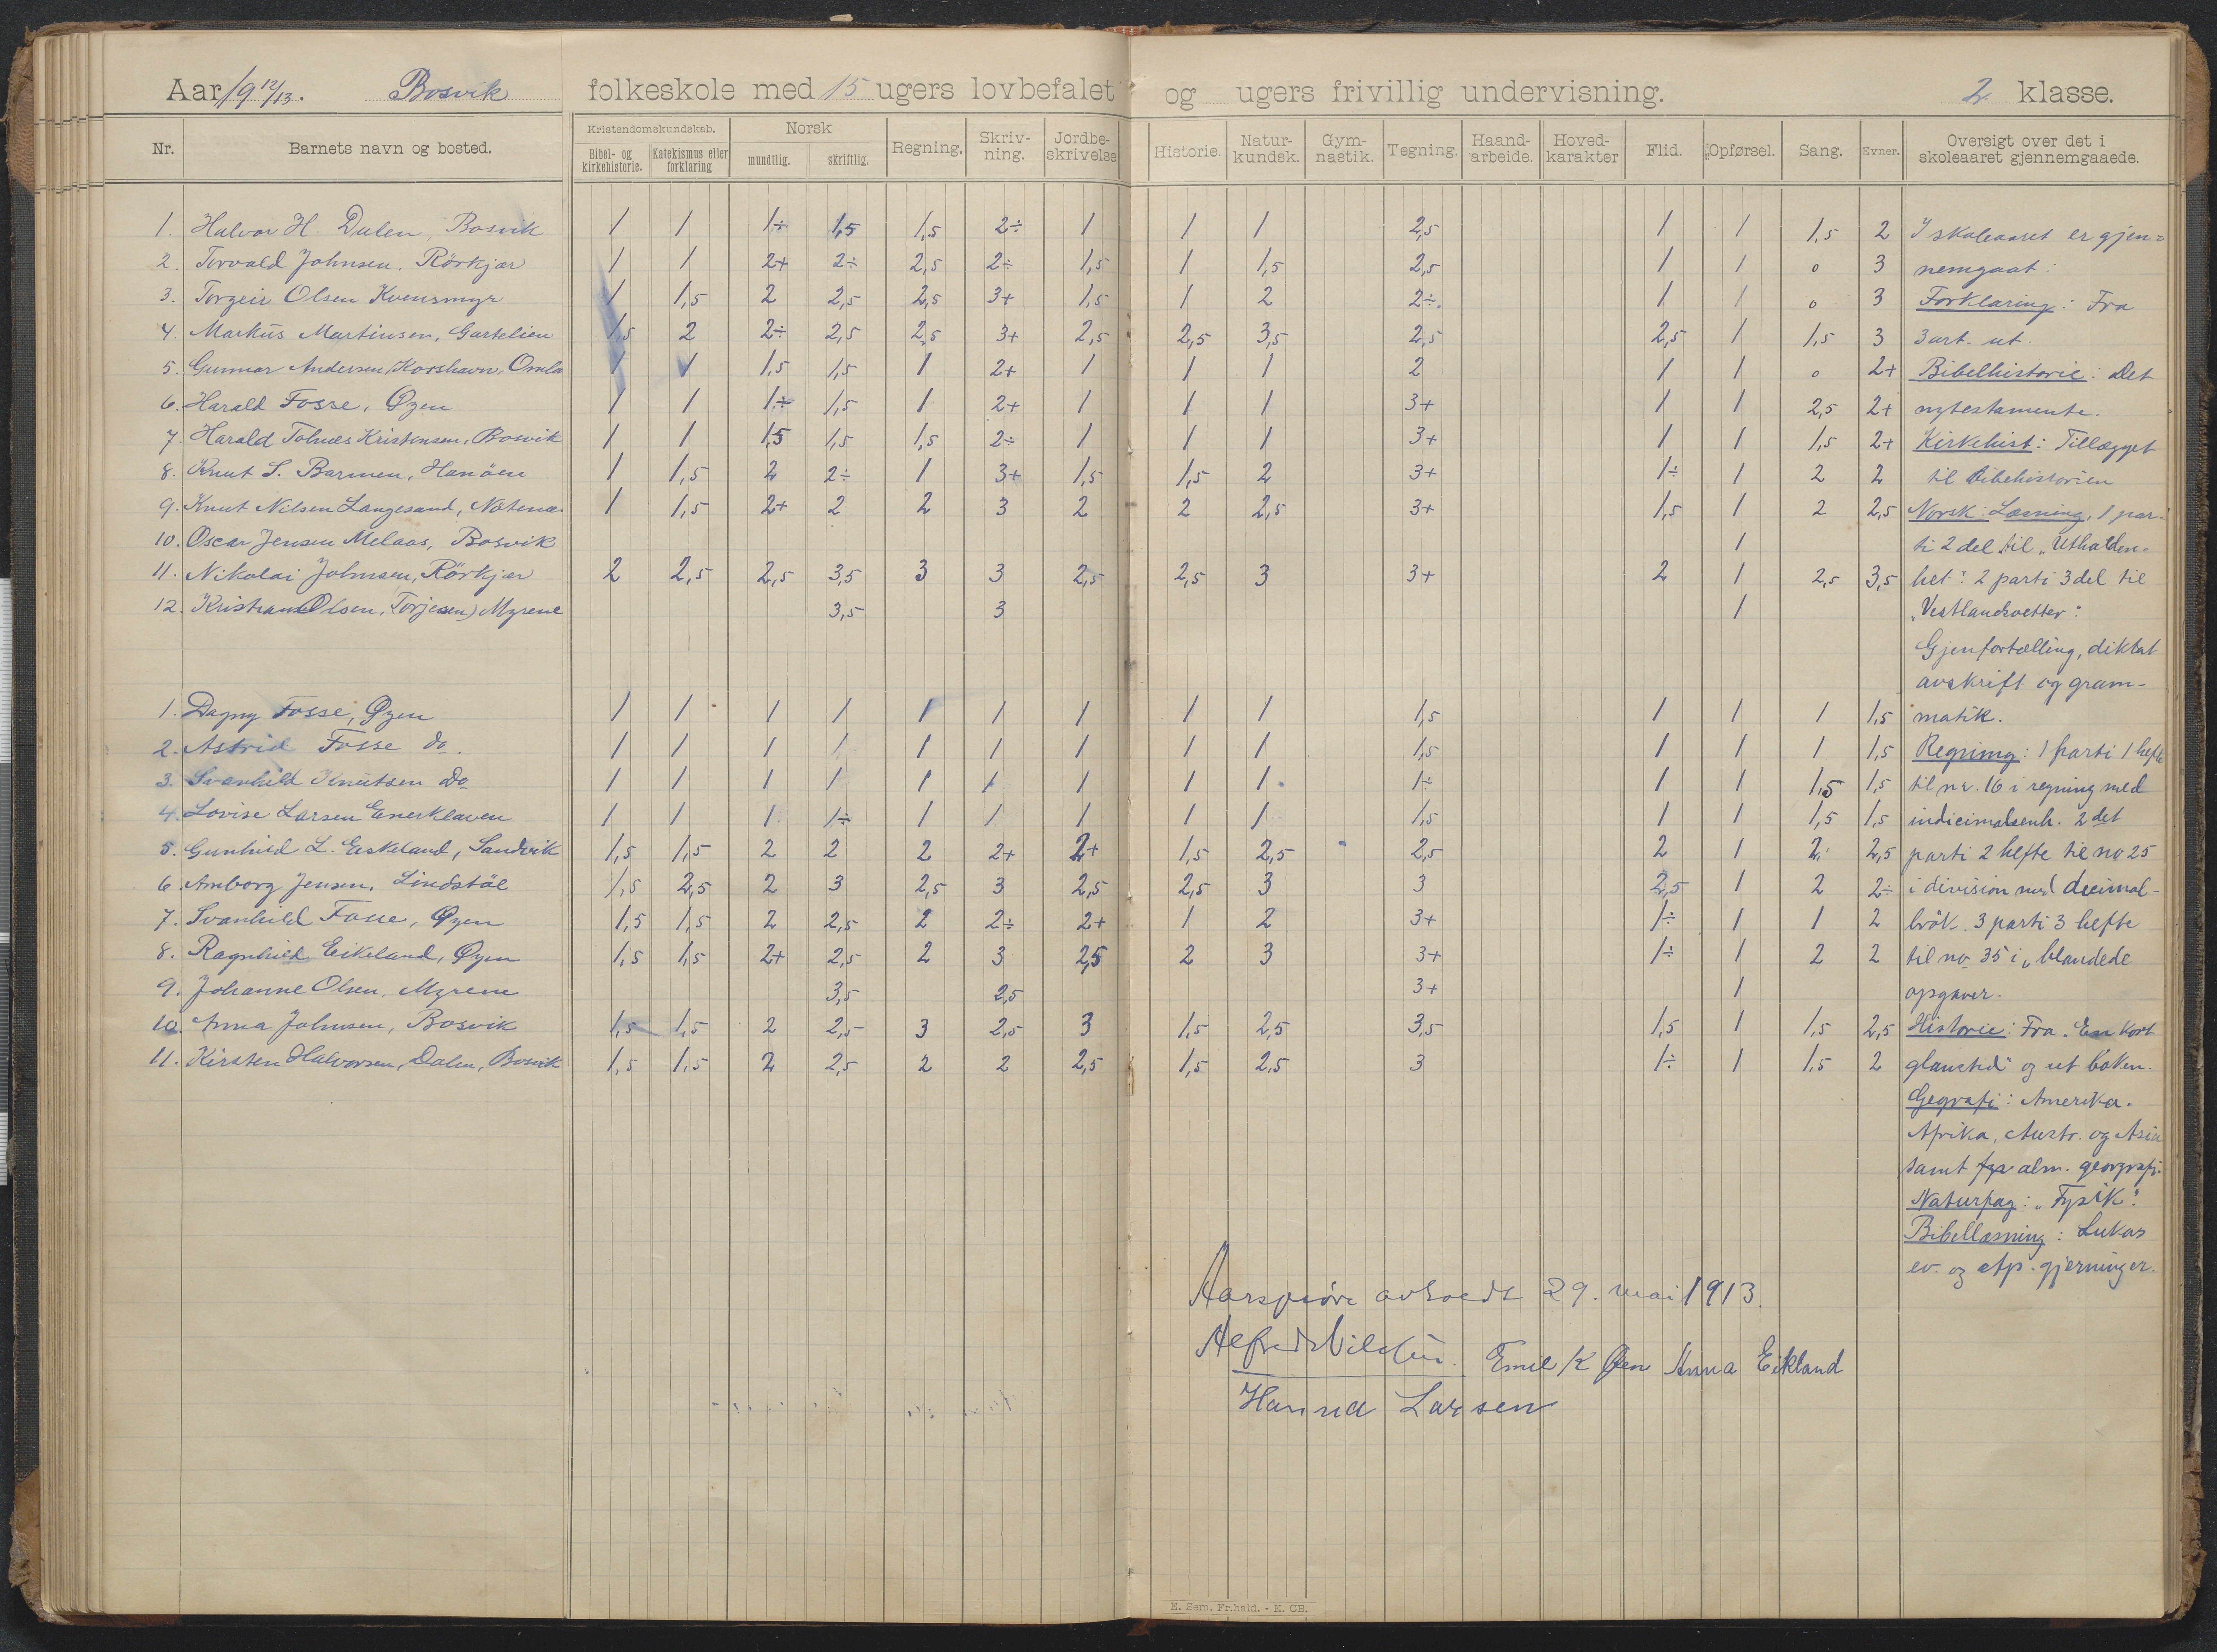 Aar 1912/13. Bosvik folkeskole med 15 ugers lovbefalet og ugers frivillig undervisning. 2 klasse.
Nr. Barnets navn og bosted. Kristendomskundskab. Bibel- og kirkehistorie. Katekismus eller forklaring Norsk mundtlig. skriftlig. Regning. Skriv-ning. Jordbe-skrivelse Historie. Natur-kundsk. Gym-nastik. Tegning. Haand-arbeide. Hoved-karakter Flid. Opførsel. Sang. Evner. Oversigt over det i skoleaaret gjennemgaaede.
1. Halvor H. Dalen, Bosvik 1 1 1÷ 1,5 1,5 2÷ 1 1 1 2,5 1 1 1,5 2 I skoleaaret er gjen=
2. Torvald Johnsen, Rörkjær 1 1 2+ 2÷ 2,5 2÷ 1,5 1 1,5 2,5 1 1 0 3 nemgaat:
3. Torgeir Olsen Kvensmyr 1 1,5 2 2,5 2,5 3+ 1,5 1 2 2÷. 1 1 0 3 Forklaring: Fra
4. Markus Martinsen, Gartelien 1,5 2 2÷ 2,5 2,5 3+ 2,5 2,5 3,5 2,5 2,5 1 1,5 3 3 art. ut.
5. Gunnar Andersen Korshavn, Omla 1 1 1,5 1,5 1 2+ 1 1 1 2 1 1 0 2+ Bibelhistorie: Det
6. Harald Fosse, Øyen 1 1 1÷ 1,5 1 2+ 1 1 1 3+ 1 1 2,5 2+ nytestamente.
7. Harald Tolnæs Kristensen, Bosvik 1 1 1,5 1,5 1,5 2÷ 1 1 1 3+ 1 1 1,5 2+ Kirkehist: Tillægget
8. Knut S. Barmen, Hanöen 1 1,5 2 2÷ 1 3+ 1,5 1,5 2 3+ 1÷ 1 2 2 til Bibelhistorien
9. Knut Nilsen Langesand, 1 1,5 2+ 2 2 3 2 2 2,5 3+ 1,5 1 2 2,5 Norsk: Læsning, 1 par-
10. Oscar Jensen Melaas, Bosvik 1 ti 2 del til "Utholden-
11. Nikolai Johnsen, Rörkjær 2 2,5 2,5 3,5 3 3 2,5 2,5 3 3+ 2 1 2,5 3,5 het". 2 parti 3 del til
12. Kristian Olsen, Torjesen) Myrene 3,5 3 1 "Vestlandsvetter".
Gjenfortælling, diktat
avskrift og gram-
1. Dagny Fosse, Øyen 1 1 1 1 1 1 1 1 1 1,5 1 1 1 1,5 matik.
2. Astrid Fosse do. 1 1 1 1 1 1 1 1 1 1,5 1 1 1 1,5 Regning: 1 parti 1 hefte
3. Svanhild Knutsen do 1 1 1 1 1 1 1 1 1 1÷ 1 1 1,5 1,5 til nr. 16 i regning med
4. Lovise Larsen Enerklaven 1 1 1 1÷ 1 1 1 1 1 1,5 1 1 1,5 1,5 indicimalsenh. 2 det
5. Gunhild L. Eskeland, Sandvik 1,5 1,5 2 2 2 2+ 2+ 1,5 2,5 2,5 2 1 2. 2,5 parti 2 hefte til no 25
6. Amborg Jensen, Lindstøl 1,5 2,5 2 3 2,5 3 2,5 2,5 3 3 2,5 1 2 2÷ i division med decimal-
7. Svanhild Fosse, Øyen 1,5 1,5 2 2,5 2 2÷ 2+ 1 2 3+ 1÷ 1 1 2 brök. 3 parti 3 hefte
8. Ragnhild Eikeland, Øyen 1,5 1,5 2+ 2,5 2 3 2,5 2 3 3+ 1÷ 1 2 2 til no 35 i "blandede
9. Johanne Olsen, Myrene 3,5 2,5 3+ 1 opgaver.
10. Anna Johnsen, Bosvik 1,5 1,5 2 2,5 3 2,5 3 1,5 2,5 3,5 1,5 1 1,5 2,5 Historie: Fra "En kort
11. Kirsten Halvorsen, Dalen, Bosvik 1,5 1,5 2 2,5 2 2 2,5 1,5 2,5 3 1÷ 1 1,5 2 glanstid" og ut boken.
Gegrafi: Amerika.
Afrika, Austr. og Asia
samt alm. geografi.
Naturfag: "Fysik".
Bibellæsning: Lukas
ev. og atp. gjerninger.
Aarsprøve avholdt 29. mai 1913.
Alfred Emil K Øen Anna Eikland
Hanna Larsen
E. Sem, Fr.hald. - E. CB.